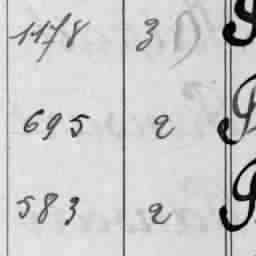 1178 3
695 2
583 2